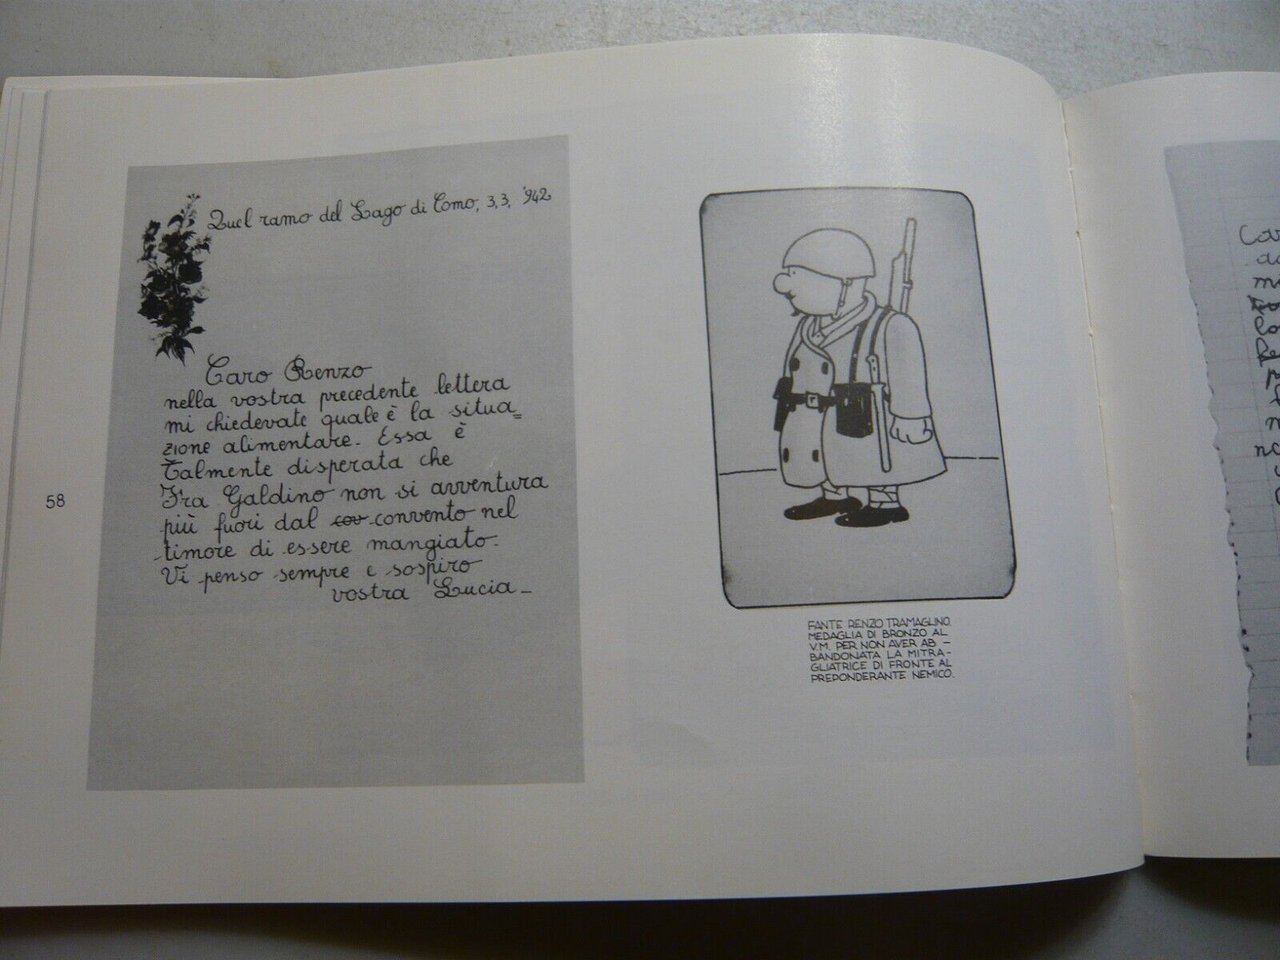 58
Quel ramo del Lago di Como, 3, 3, '942
Caro Renzo
nella vostra precedente lettera
mi chiedevate quale è la situa=
zione alimentare. Essa è
talmente disperata che
Fra Galdino non si avventura
più fuori dal cov convento nel
timore di essere mangiato.
Vi penso sempre e sospiro
vostra Lucia_
FANTE RENZO TRAMAGLINO.
MEDAGLIA DI BRONZO AL
V.M. PER NON AVER AB-
BANDONATA LA MITRA-
GLIATRICE DI FRONTE AL
PREPONDERANTE NEMICO.